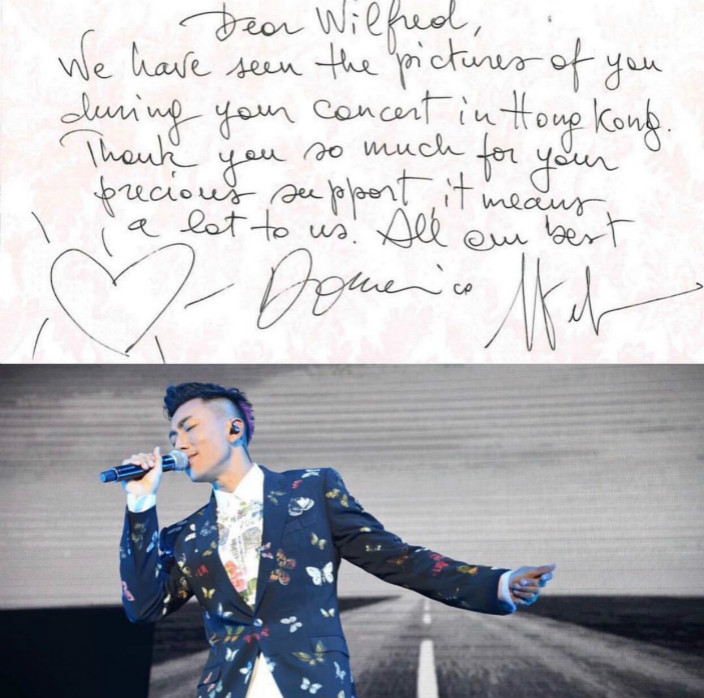 Dear Wilfred,
We have seen the pictures of you
during your concert in Hong Kong.
Thank you so much for your
precious support, it means
a lot to us. All our best
Domenico